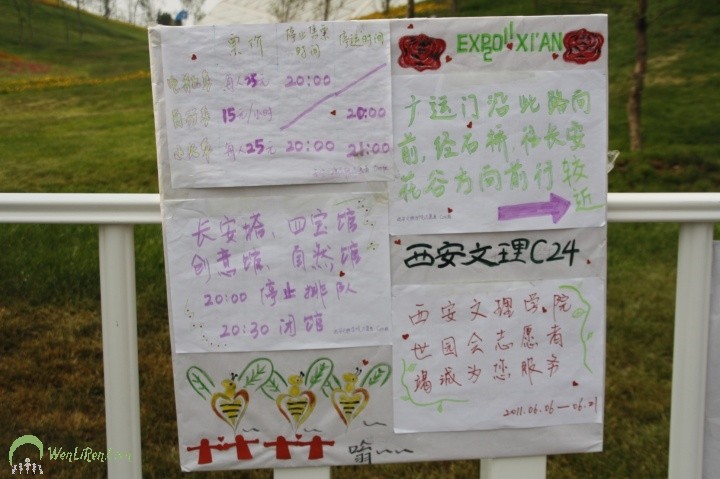 票价 停止售票时间 停运时间
每人25元 20:00
15元/小时 20:00
每人25元 20:00 21:00
长安塔、四宝馆
创意馆、自然馆
20:00 停止排队
20:30 闭馆
嗡
EXPO 2011 XI'AN
广运门沿此路向
前,经石桥,往长安
花谷方向前行较
近
西安文理C24
西安文理学院
世园会志愿者
竭诚为您服务
2011.06.06—06.21
WenLiRen